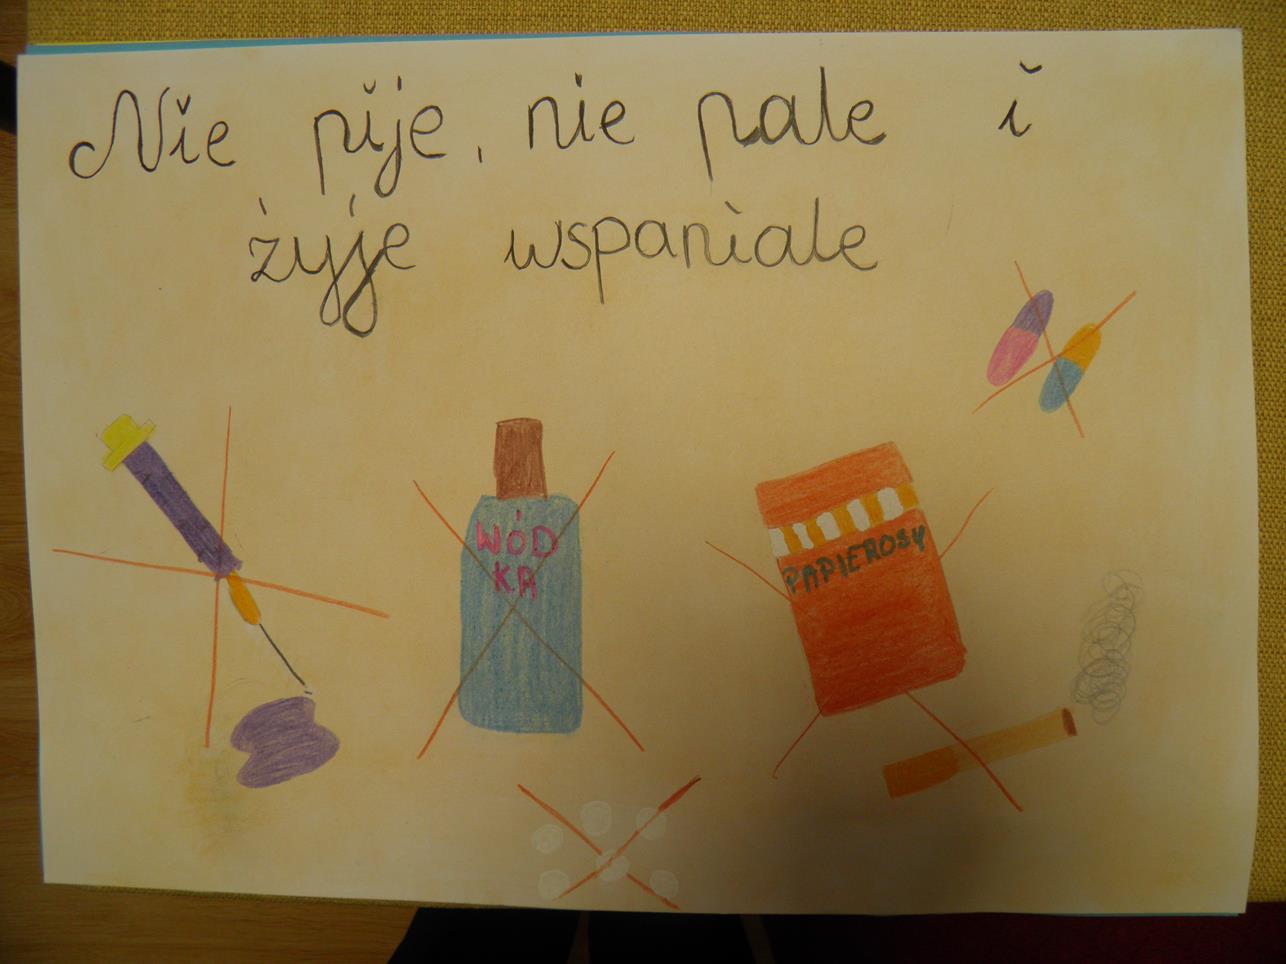 Nie pije, nie pale i
żyje wspaniale
WÓD
KA
PAPIEROSY